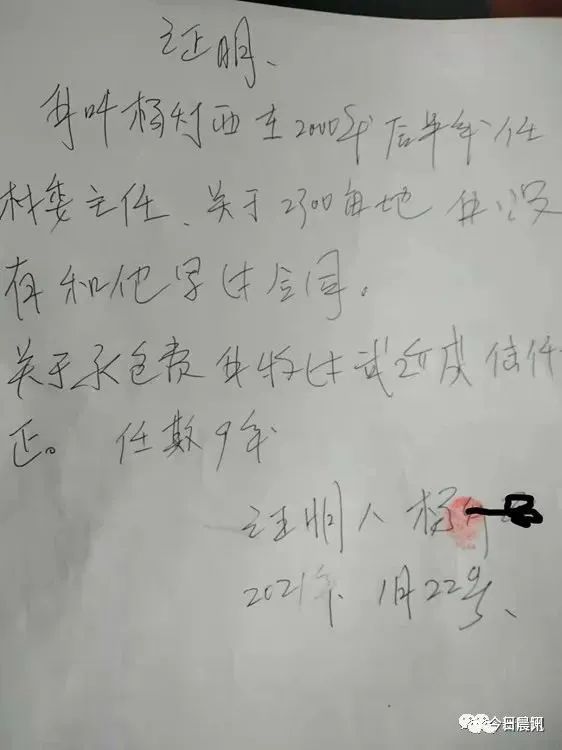 证明、
我叫杨对西在2000年后半年任
村委主任、关于2300亩地我没
有和他写过合同。
关于承包费我收过
正。任期9年
证明人 杨
2021年、1月22号、
今日晨讯